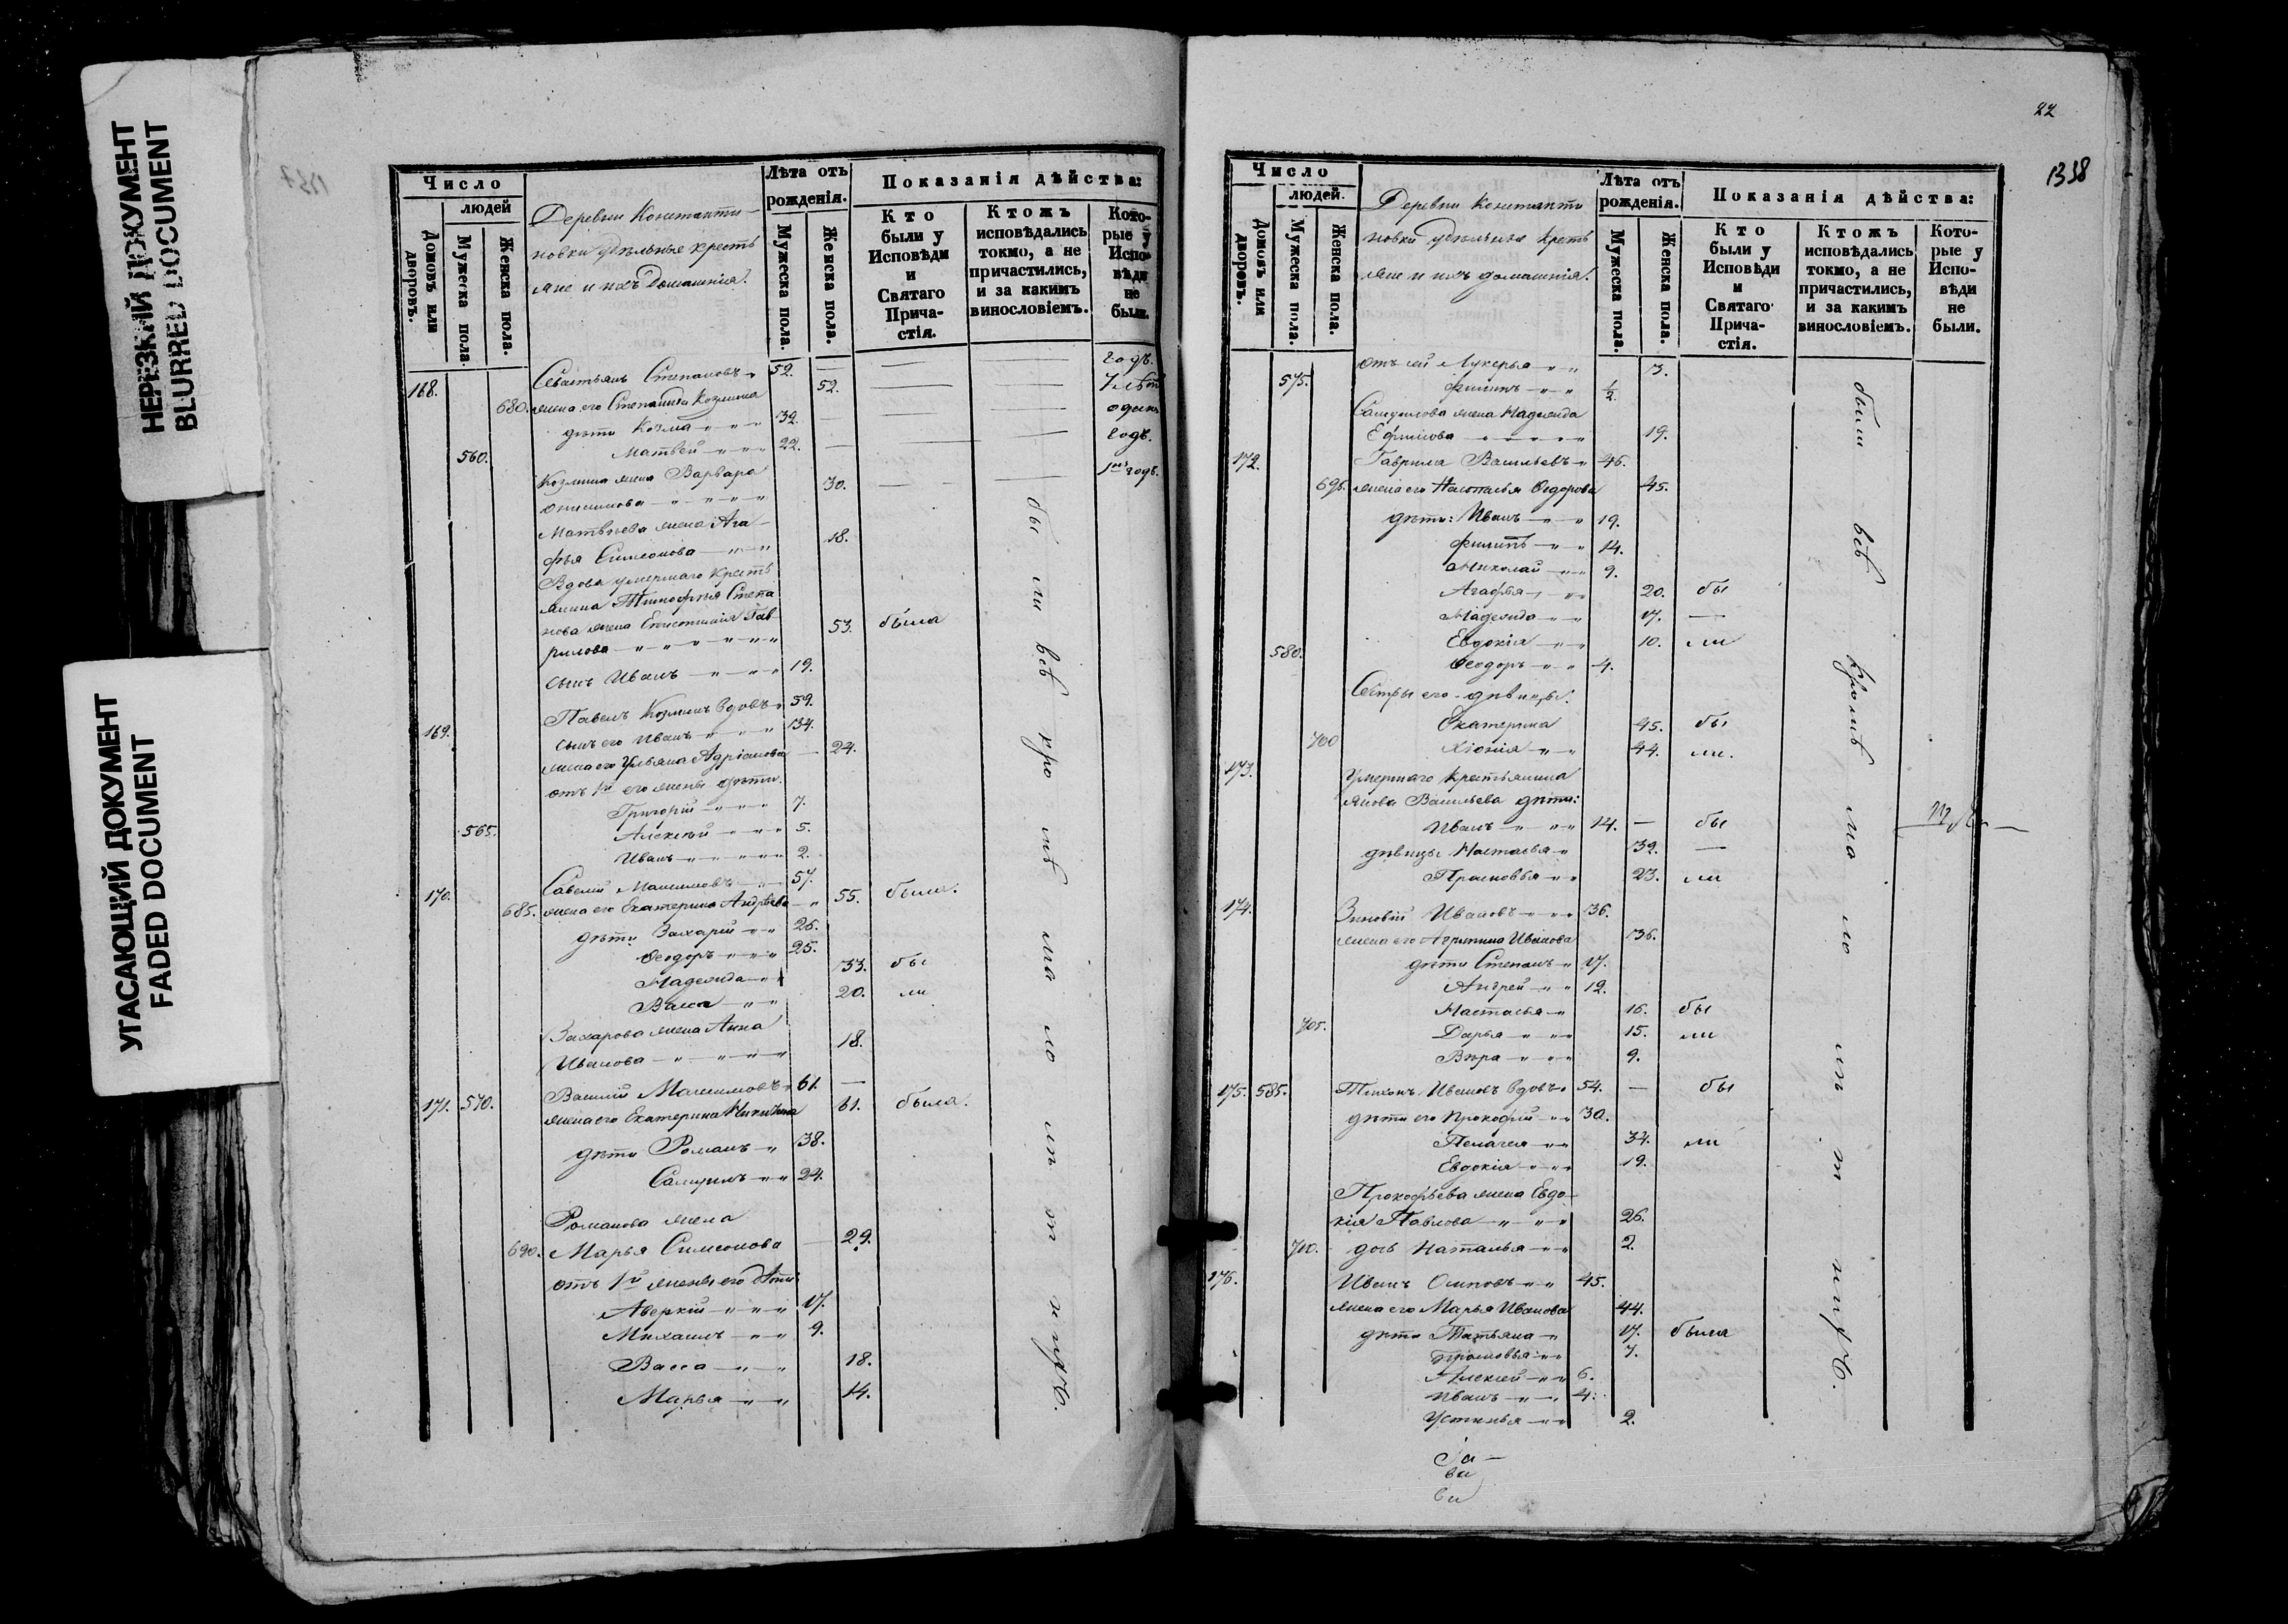 НЕРЕЗКИЙ ДОКУМЕНТ
BLURRED DOCUMENT
УГАСАЮЩИЙ ДОКУМЕНТ
FADED DOCUMENT
Число
людей
Домовъ или дворовъ.
Мужеска пола.
Женска пола.
Деревни Константи-
новки удѣльные кресть
яне и ихъ домашнія.
Лѣта отъ рожденія.
Мужеска пола.
Женска пола.
Показанія дѣйства:
Кто были у Исповѣди и Святаго Прича-стія.
Ктожъ исповѣдались токмо, а не причастились, и за какимъ винословіемъ.
Кото-рые у Испо-вѣди не были.
168. Севастьянъ Степановъ 52. годъ.
680. жена его Степанида Козмина 52.
дѣти Козма 32. одинъ
560. Матвей 22. годъ.
Козмина жена Варвара 30.
Матвѣева жена Ага-
фья Симеонова 18.
Вдова умершаго кресть
янина Тимофѣя Степа
нова жена Гав-
рилова 53. была
сынъ Иванъ 19.
169. Павелъ Козминъ вдовъ 59.
сынъ его Иванъ 34.
жена его Ульяна Адріанова 24.
отъ 1й его жены дѣти.
Григорій 7.
565. Алексѣй 5.
Иванъ 2.
170. Савелій Максимовъ 57.
685. жена его Екатерина Андрѣева 55. была.
дѣти Захарій 26.
Ѳеодоръ 25.
Надежда 33. бы
Васса 20. ли
Захарова жена Анна
Иванова 18.
171. 570. Василій Максимовъ 61.
жена его Екатерина Никитина 61. была.
дѣти Романъ 38.
Самуилъ 24.
Романова жена
690. Марья Симеонова 29.
отъ 1й жены его дѣти
Аверкій 17.
Михаилъ 9.
Васса 18.
Марья 14.
22
1338
Число
людей.
Домовъ или дворовъ.
Мужеска пола.
Женска пола.
Деревни Константи
новки удѣльные кресть
яне и ихъ домашнія.
Лѣта отъ рожденія.
Мужеска пола.
Женска пола.
Показанія дѣйства:
Кто были у Исповѣди и Святаго Прича-стія.
Ктожъ исповѣдались токмо, а не причастились, и за какимъ винословіемъ.
Кото-рые у Испо-вѣди не были.
Лукерья 3.
575. Филипъ 1/2
Самуилова жена Надежда
Ефимова 19.
172. Гаврила Васильевъ 46.
695. жена его Наталья Ѳедорова 45.
дѣти: Иванъ 19.
Филипъ 14.
Николай 9.
Агафья 20. бы
Надежда 17.
Евдокія 10. ли
580. Ѳеодоръ 4.
Сестры его дѣвицы:
Екатерина 45. бы
700 Хіонія 44. ли.
173. Умершаго крестьянина
Якова Васильева дѣти:
Иванъ 14. бы
дѣвицы Настасья 32.
Прасковья 23. ли
174. Зиновій Ивановъ 36.
жена его Агрипина Иванова 36.
дѣти Степанъ 17.
Андрей 12.
Настасья 16. бы
705. Дарья 15. ли
Вѣра 9.
175. 585. Тихонъ Ивановъ вдовъ 54. бы
дѣти его Прокофій 30.
Пелагея 34. ли
Евдокія 19.
Прокофьева жена Евдо-
кія Павлова 26.
710. дочь Наталья 2.
176. Иванъ Осиповъ 45.
жена его Марья Иванова 44.
дѣти Татьяна 17. была
Прасковья 7.
Алексей 6.
Иванъ 4.
Устинья 2.